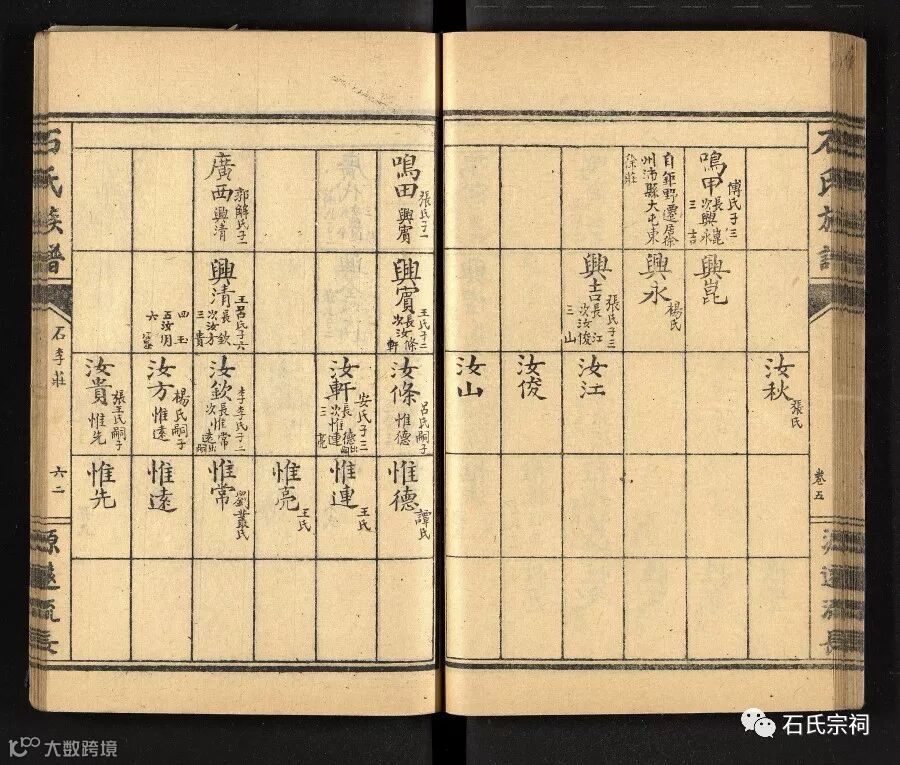 石氏族譜
卷五
源遠流長
鳴甲
傅氏子三
長興崑
次興永
三吉
自鉅野遷居徐
州沛縣大屯東
徐莊
興崑
興永
楊氏
興吉
張氏子三
長汝江
次汝俊
三山
汝秋
張氏
汝江
汝俊
汝山
鳴田
張氏子一
興賓
廣西
郭解氏子一
興清
興賓
王氏子二
長汝條
次汝軒
興清
王呂氏子六
長汝欽
次汝方
三貴
四玉
五汝明
六
汝條
呂氏嗣子
惟德
汝軒
安氏子三
長惟德出嗣
次惟連
三亮
汝欽
李李氏子二
長惟常
次惟遠出嗣
汝方
楊氏嗣子
惟遠
汝貴
張王氏嗣子
惟先
惟德
譚氏
惟連
王氏
惟亮
王氏
惟常
劉叢氏
惟遠
惟先
石氏族譜
石李莊
六二
源遠流長
石氏宗祠
大数跨境